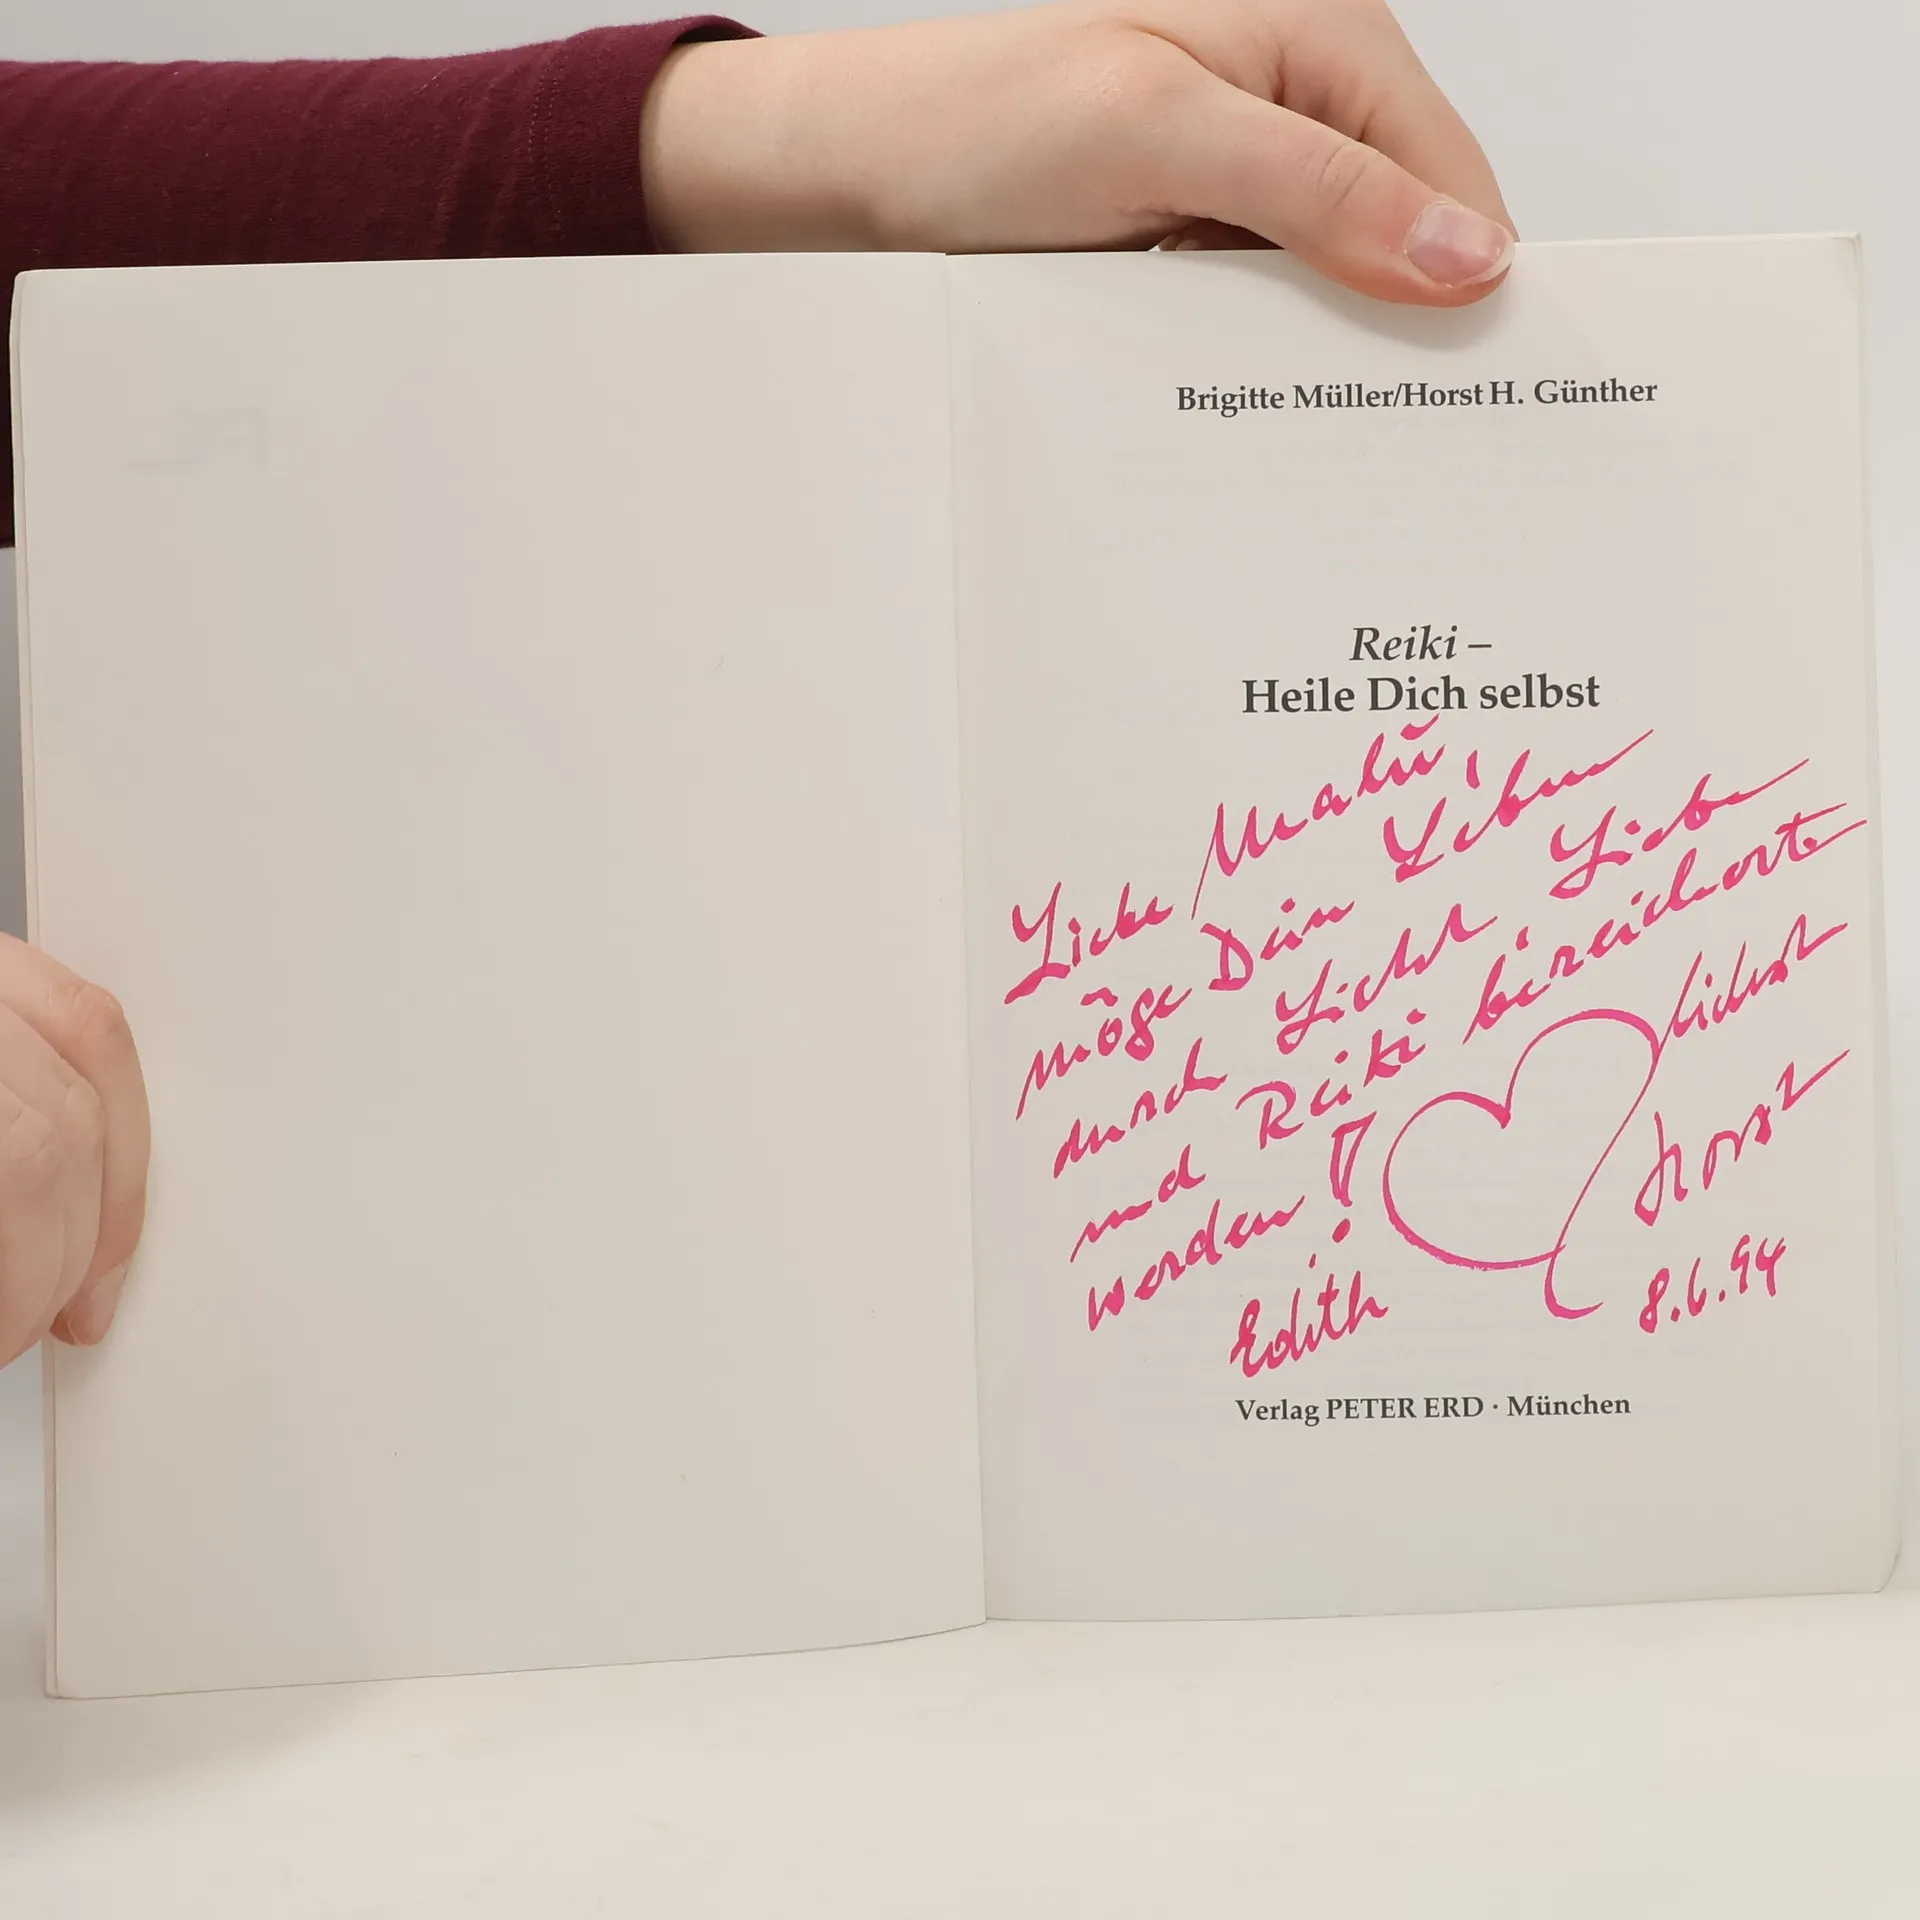 Brigitte Müller/Horst H. Günther
Reiki –
Heile Dich selbst
Liebe Malu,
möge Dein Leben
durch Licht Liebe
und Reiki bereichert
werden!
lichst
Horst
Edith
8.6.94
Verlag PETER ERD · München